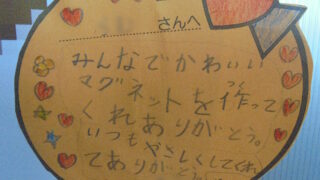 さんへ
みんなでかわいい
マグネットを作って
つく
くれありがとう。
いつもやさしくしてくれ
てありが